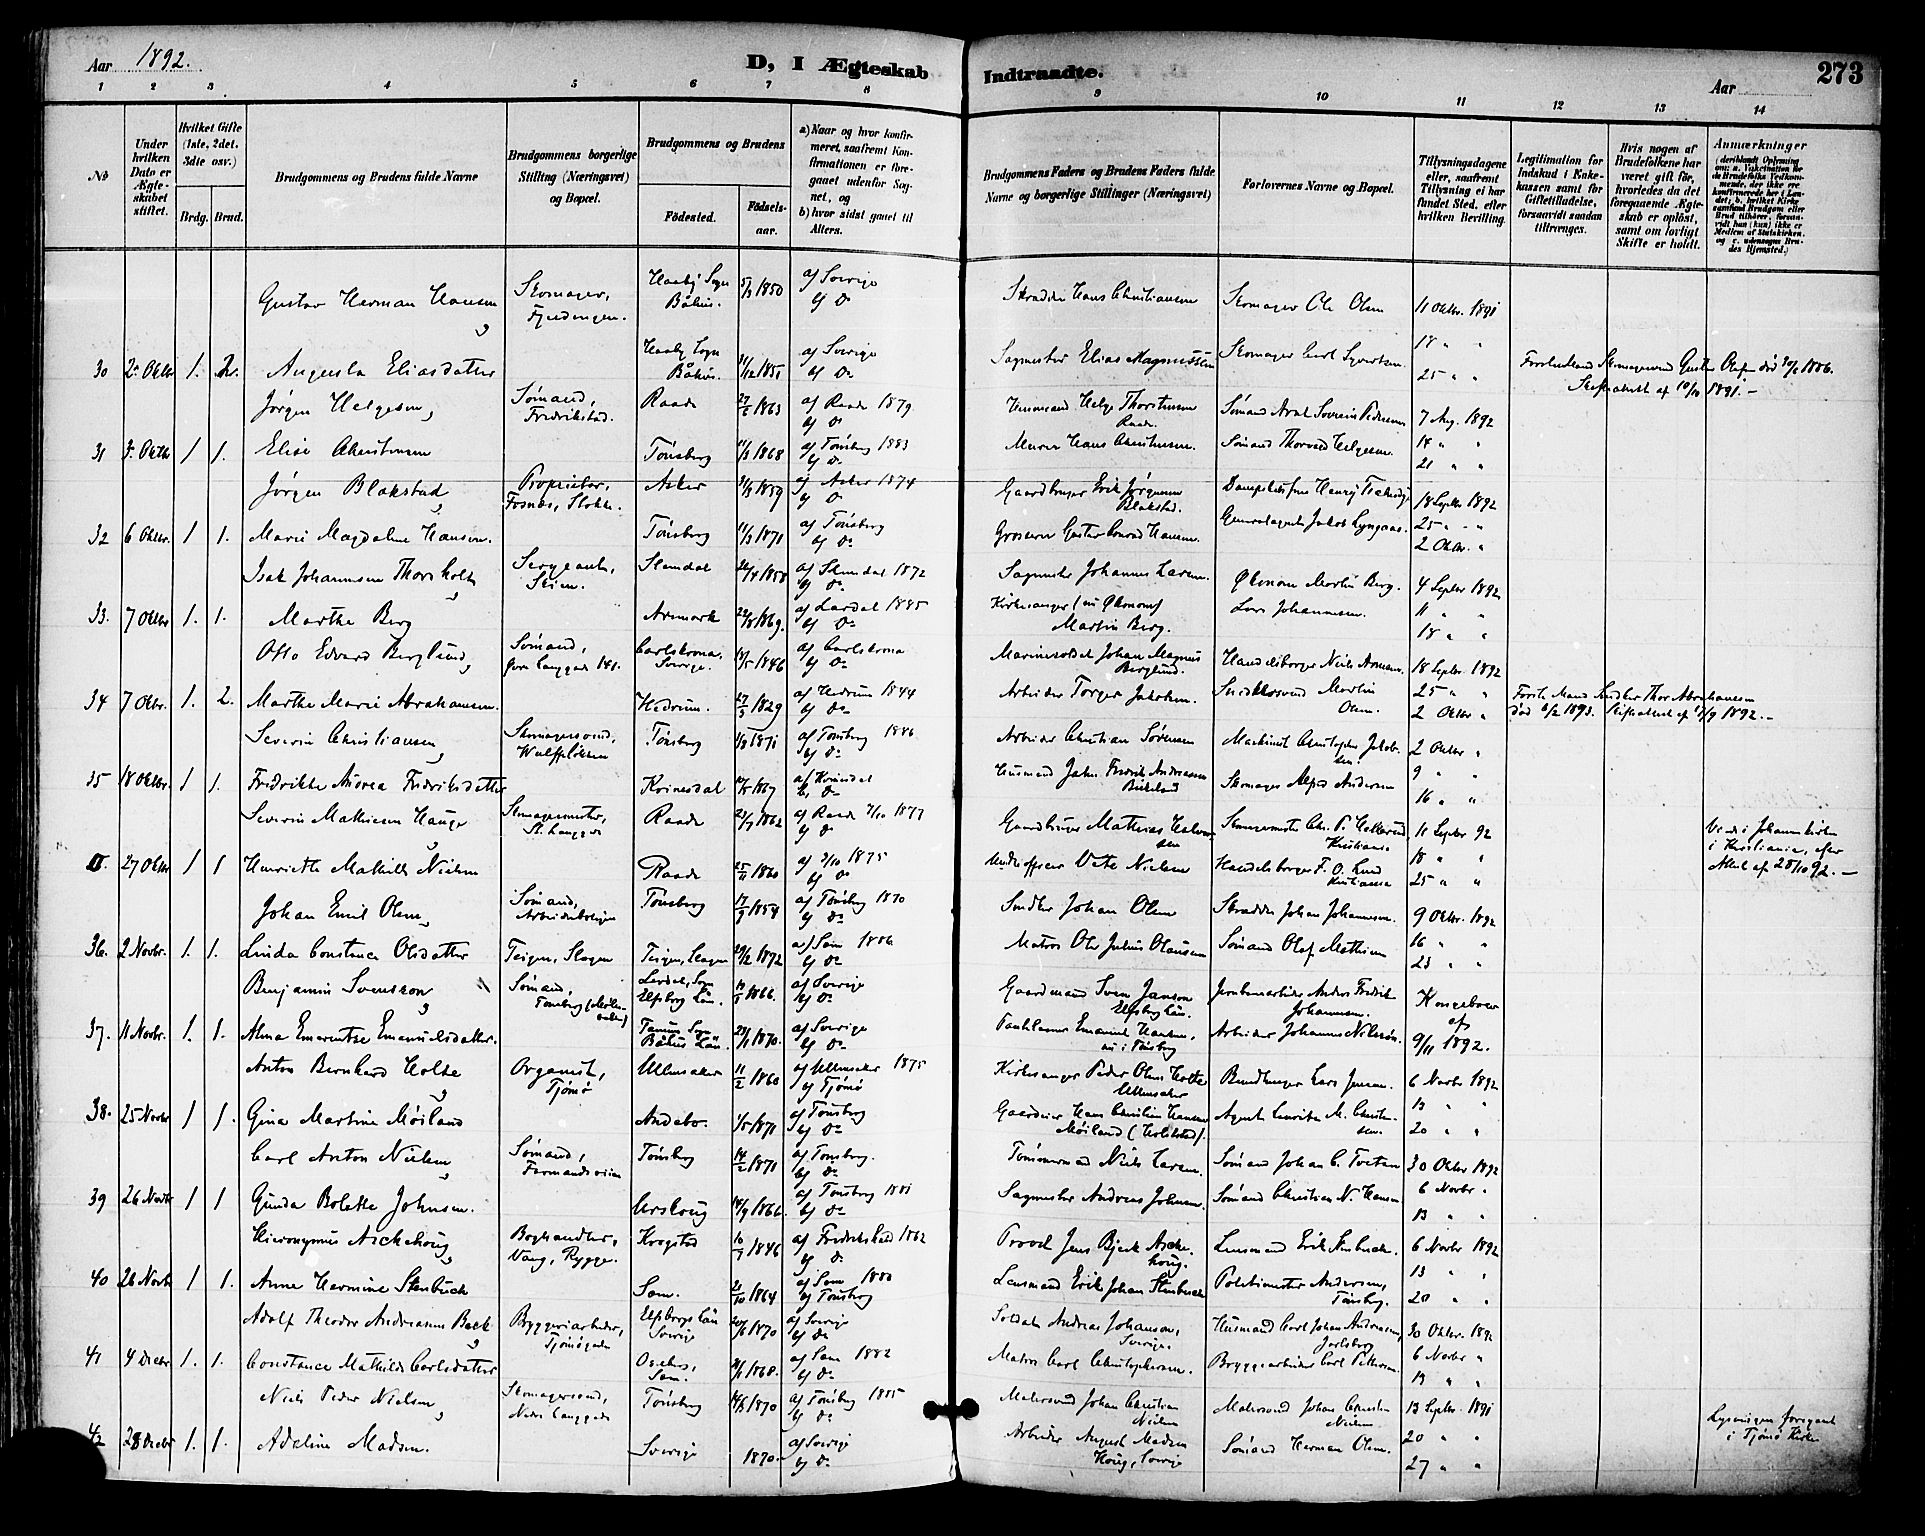 Aar 1892.
D, I Ægteskab Indtraadte.
Aar
273
1 2 3 4 5 6 7 8 9 10 11 12 13 14
No
Under hvilken Dato er Ægteskabet stiftet.
Hvilket Gifte (1ste, 2det, 3die osv.)
Brdg. Brud.
Brudgommens og Brudens fulde Navne
Brudgommens borgerlige Stilling (Næringsvei) og Bopæl.
Brudgommens og Brudens
Fødested. Fødselsaar.
a) Naar og hvor konfirmeret, saafremt Konfirmationen er foregaaet udenfor Sognet, og
b) hvor sidst gaaet til Alters.
Brudgommens Faders og Brudens Faders fulde Navne og borgerlige Stillinger (Næringsvei)
Forlovernes Navne og Bopæl.
Tillysningsdagene eller, saafremt Tillysning ei har fundet Sted, efter hvilken Bevilling.
Legitimation for Indskud i Enkekassen samt for Giftetilladelse, forsaavidt saadan tiltrænges.
Hvis nogen af Brudefolkene har været gift før, hvorledes da det foregaaende Ægteskab er opløst, samt om lovligt Skifte er holdt.
Anmærkninger
Gustav Herman Hansen Skomager, Fjerdingen. Haaby Sogn Båhus. 1850 af Sverige
Skrædder Hans Christiansen Skomager Ole Olsen 11 Oktbr. 1891
18 " "
30 2. Oktbr 1. 2. Augusta Eliasdatter Haaby Sogn Båhus. 31/12 1851 af Sverige
Sagmester Elias Magnussen Skomager Carl Syvertsen. 25 " "
Skifteattest af 10/10 1891.
Jørgen Helgesen, Sømand, Fredrikstad. Raade 27/5 1863 af Raade 1879
Husmand Helge Thorstensen Raade. 7 Aug. 1892
31 3. Oktbr 1 1. Elise Christensen Tønsberg 1868 af Tønsberg 1883
Murer Hans Christensen. Sømand Thorvald Helgesen. 14 " "
21 " "
Jørgen Blakstad, Proprietær, Fosnæs, Stokke. Asker 1859 af Asker 1874
Gaardbruger Erik Jørgensen Blakstad. 18 Septbr 1892
32 6 Oktbr. 1 1. Marie Magdalene Hansen. Tønsberg 1871 af Tønsberg
Grosserer Gustav Conrad Hansen. Generalagent Jakob Lyngaas. 25 " "
2 Oktbr. "
Isak Johannesen Thorsholt, Sergeant, Skien. Slemdal 26/4 1858 af Slemdal 1872
Sagmester Johannes Larsen. Økonom Martin Berg. 4 Septbr 1892
33. 7 Oktbr 1. 1. Marthe Berg Aremark 22/8 1869. af Lardal 1885
Kirkesanger (nu Økonom) Martin Berg. Lars Johannesen. 11 " "
18 " "
Otto Edvard Berglund, Sømand, Øvre Langgade 141. Carlskrona, Sverige. 1846 af Carlskrona
Marinesoldat Johan Magnus Berglund. Handelsborger Niels Asmann. 18 Septbr 1892
34 7 Oktbr. 1. 2. Marthe Marie Abrahamsen. Hedrum. 27/3 1829 af Hedrum 1844
Arbeider Torger Jakobsen Snedkersvend Martin Olsen. 25 " "
2 Oktbr "
Første Mand Snedker Thor Abrahamsen død 1893. Skifteattest af 17/9 1892.
Severin Christiansen, Skomagersvend, Wulffsløkken Tønsberg 1871 af Tønsberg 1886
Arbeider Christian Sørensen Maskinist Christopher Jakobsen. 2 Oktbr "
35 18 Oktbr 1 1. Fredrikke Andrea Fredriksdatter Kvinesdal 1867 af Kvinesdal
Husmand Jahn Fredrik Andreassen Birkeland Skomager Alfred Andersen 9 " "
16 " "
Severin Mathiesen Hauge Skomagermester, St. Langgade Raade 23/7 1862 af Raade 7/10 1877
Gaardbruger Mathias Halvorsen 11 Septbr 92
27 Oktbr 1 1 Henriette Mathilde Nielsen Raade 25/11 1860 af 3/10 1875
Underofficer Vette Nielsen Handelsborger F. O. Lund Kristiania 18 " "
25 " "
Viede i Johanneskirken i Kristiania, efter Attest af 28/10 92.
Johan Emil Olsen, Sømand, Arbeiderboligen Tønsberg 17/9 1854 af Tønsberg 1870
Snedker Johan Olsen Skrædder Johan Johannesen. 9 Oktbr. 1892
36. 2 Novbr. 1. 1. Linda Constance Olsdatter Teigen, Slagen Teigen, Slagen 29/2 1872 af Sem 1886
Matros Ole Julius Olausen Sømand Olaf Mathisen 16 " "
23 " "
Benjamin Svensson, Sømand, Tønsberg Elfsborg Län. 1866. af Sverige
Gaardmand Sven Janson Elfsborg Län. Jernbanearbeider Anders Fredrik Johannesen. Kongebrev af
37. 11 Novbr. 1. 1. Alma Emerentze Emanuelsdatter. Tanum Sogn Båhus Län. 1870. af Sverige
Emanuel Hansen, nu i Tønsberg Arbeider Johannes Nilsson. 9/11 1892.
Anton Bernhard Holte, Organist, Tjømø Ullensaker 11/2 1860 af Ullensaker 1875 b) Tjømø
Kirkesanger Peder Olsen Holte Ullensaker Brændhauger Lars Jensen. 6 Novbr 1892
38. 25 Novbr 1 1. Gina Martine Møiland Andebo. 1/5 1871 af Tønsberg
Gaardeier Hans Christian Hansen Møiland Agent Lauritz M. Christensen. 13 " "
20 " "
Carl Anton Nielsen, Sømand, Farmandsveien Tønsberg 14/2 1871 af Tønsberg.
Tømmermand Niels Larsen. Sømand Johan C. Tveten 30 Oktbr 1892
39 26 Novbr 1 1 Gunda Bolette Johnsen. Urskoug 1866. af Tønsberg 1881
Sagmester Andreas Johnsen. Sømand Christian N. Hansen 6 Novbr "
13 " "
Hieronymus Aschehoug, Boghandler, Vang, Rygge. Krogstad 10/7 1846 af Fredrikshald 1862
Provst Jens Bjerk Aschehoug. Lensmand Erik Stenbuck. 6 Novbr 1892
40 26 Novbr 1 1. Anne Hermine Stenbuck Sem. 21/10 1864 af Sem 1880 b) Tønsberg
Lensmand Erik Johan Stenbuck Politimester Andersen, Tønsberg. 13 " "
20 " "
Adolf Theodor Andreassen Back Bryggeriarbeider, Tjømøgaden Elfsborgs Län Sverige 1870 af Sverige
Soldat Andreas Johanson, Sverige. Husmand Carl Johan Andreassen, Jarlsberg 30 Oktbr. 1892
41 4 Decbr 1. 1. Constance Mathilde Carlsdatter Oseberg, Sem. 1868. af Sem 1882
Matros Carl Christophersen. Bryggeriarbeider Carl Pettersen. 6 Novbr "
13 " "
Niels Peder Nielsen, Skomagersvend, Nedre Langgade Tønsberg 1870 af Tønsberg 1885
Malersvend Johan Christian Nielsen Malersvend Johan Christen Nielsen 13 Septbr. 1891
42 28 Decbr 1. 1. Adeline Madsen. Sverige 1870. af Sverige
Arbeider August Madsen Houg, Sverige Sømand Herman Olsen. 20 " "
27 " "
Lysningen foregaaet i Tjømø Kirke